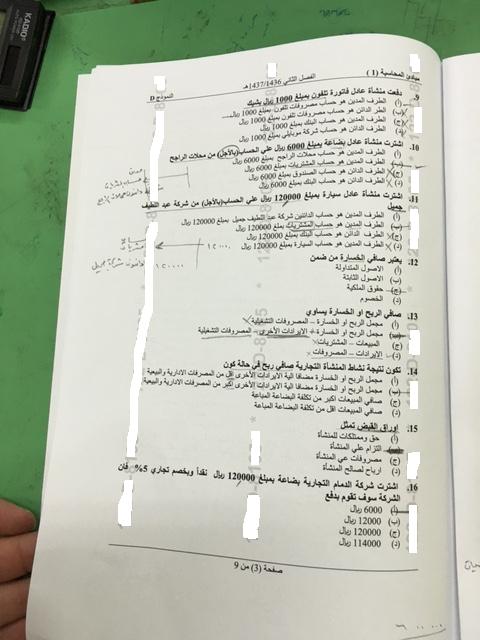 KADIO
مبادئ المحاسبة ( 1 )
الفصل الثاني 1437/1436هـ
النموذج D
9. دفعت منشأة عادل فاتورة تلفون بمبلغ 1000 ريال بشيك
أ) الطرف المدين هو حساب مصروفات تلفون بمبلغ 1000 ريال
ب) الطرف الدائن هو حساب مصروفات تلفون بمبلغ 1000 ريال
ج) الطرف المدين هو حساب البنك بمبلغ 1000 ريال
د) الطرف الدائن هو حساب شركة موبايلي بمبلغ 1000 ريال
10. اشترت منشأة عادل بضاعة بمبلغ 6000 ريال علي الحساب(بالأجل) من محلات الراجح
أ) الطرف المدين هو حساب محلات الراجح بمبلغ 6000 ريال
ب) الطرف المدين هو حساب المشتريات بمبلغ 6000 ريال
ج) الطرف الدائن هو حساب الصندوق بمبلغ 6000 ريال
د) الطرف الدائن هو حساب البنك بمبلغ 6000 ريال
11. اشترت منشأة عادل سيارة بمبلغ 120000 ريال علي الحساب(بالأجل) من شركة عبد اللطيف
جميل
أ) الطرف المدين هو حساب الدائنين شركة عبد اللطيف جميل بمبلغ 120000 ريال
ب) الطرف المدين هو حساب المشتريات بمبلغ 120000 ريال
ج) الطرف المدين هو حساب البنك بمبلغ 120000 ريال
د) الطرف المدين هو حساب السيارة بمبلغ 120000 ريال
١٢٠٠٠٠
١٢٠٠٠٠
12. يعتبر صافي الخسارة من ضمن
أ) الاصول المتداولة
ب) الاصول الثابتة
ج) حقوق الملكية
د) الخصوم
13. صافي الربح او الخسارة يساوي
أ) مجمل الربح او الخسارة – المصروفات التشغيلية
ب) مجمل الربح او الخسارة + الايرادات الأخرى – المصروفات التشغيلية
ج) المبيعات – المشتريات
د) الايرادات – المصروفات
14. تكون نتيجة نشاط المنشأة التجارية صافي ربح في حالة كون
أ) مجمل الربح او الخسارة مضافا الية الايرادات الأخرى أقل من المصرفات الادارية والبيعية
ب) مجمل الربح او الخسارة مضافا الية الايرادات الأخرى أكبر من المصرفات الادارية والبيعية
ج) صافي المبيعات اكبر من تكلفة البضاعة المباعة
د) صافي المبيعات اقل من تكلفة البضاعة المباعة
15. اوراق القبض تمثل
أ) حق وممتلكات للمنشأة
ب) التزام علي المنشأة
ج) مصروفات علي المنشأة
د) ارباح لصالح المنشأة
16. اشترت شركة الدمام التجارية بضاعة بمبلغ 120000 ريال نقداً وبخصم تجاري 5% فان
الشركة سوف تقوم بدفع
أ) 6000 ريال
ب) 12000 ريال
ج) 120000 ريال
د) 114000 ريال
صفحة (3) من 9